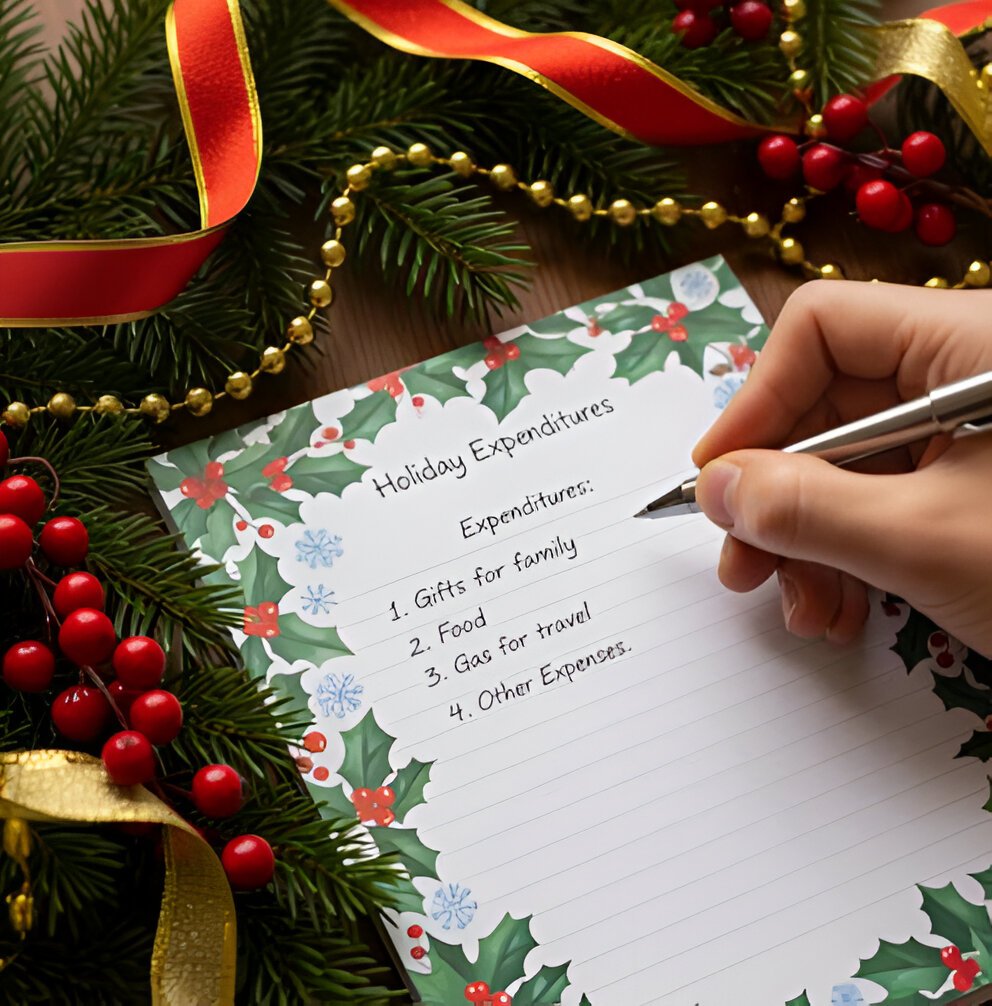 Holiday Expenditures
Expenditures:
1. Gifts for family
2. Food
3. Gas for travel
4. Other Expenses.